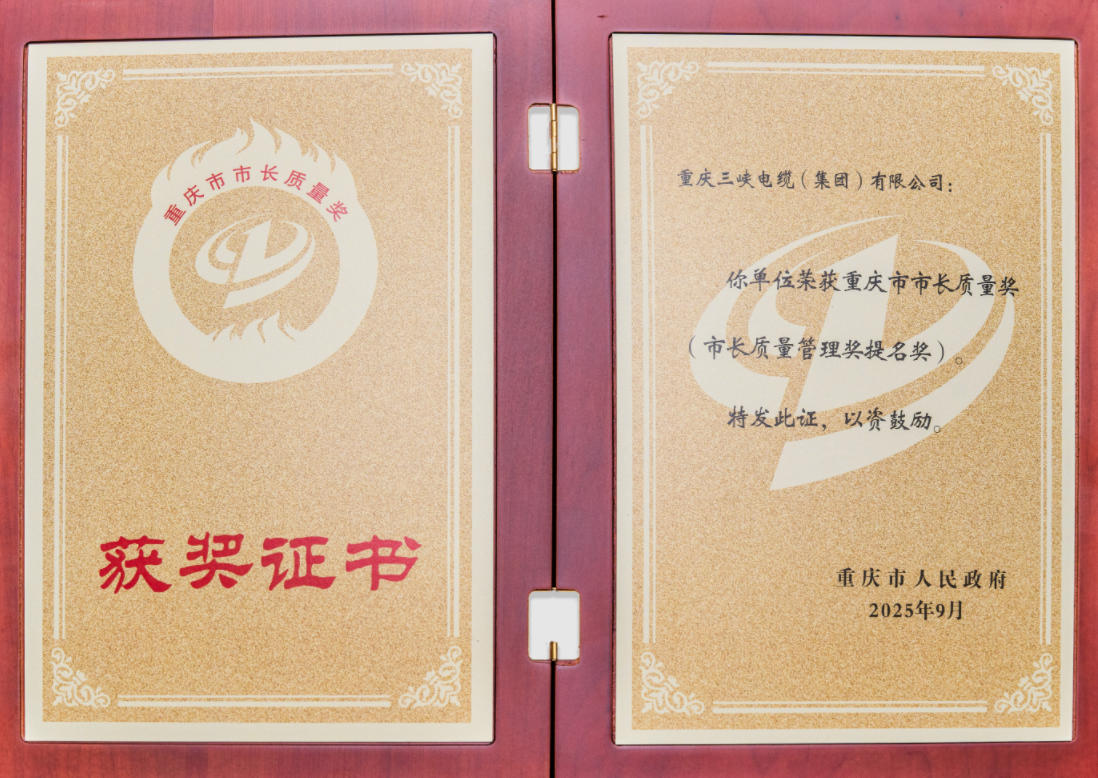 重庆市市长质量奖
获奖证书
重庆三峡电缆（集团）有限公司：
你单位荣获重庆市市长质量奖
（市长质量管理奖提名奖）。
特发此证，以资鼓励。
重庆市人民政府
2025年9月